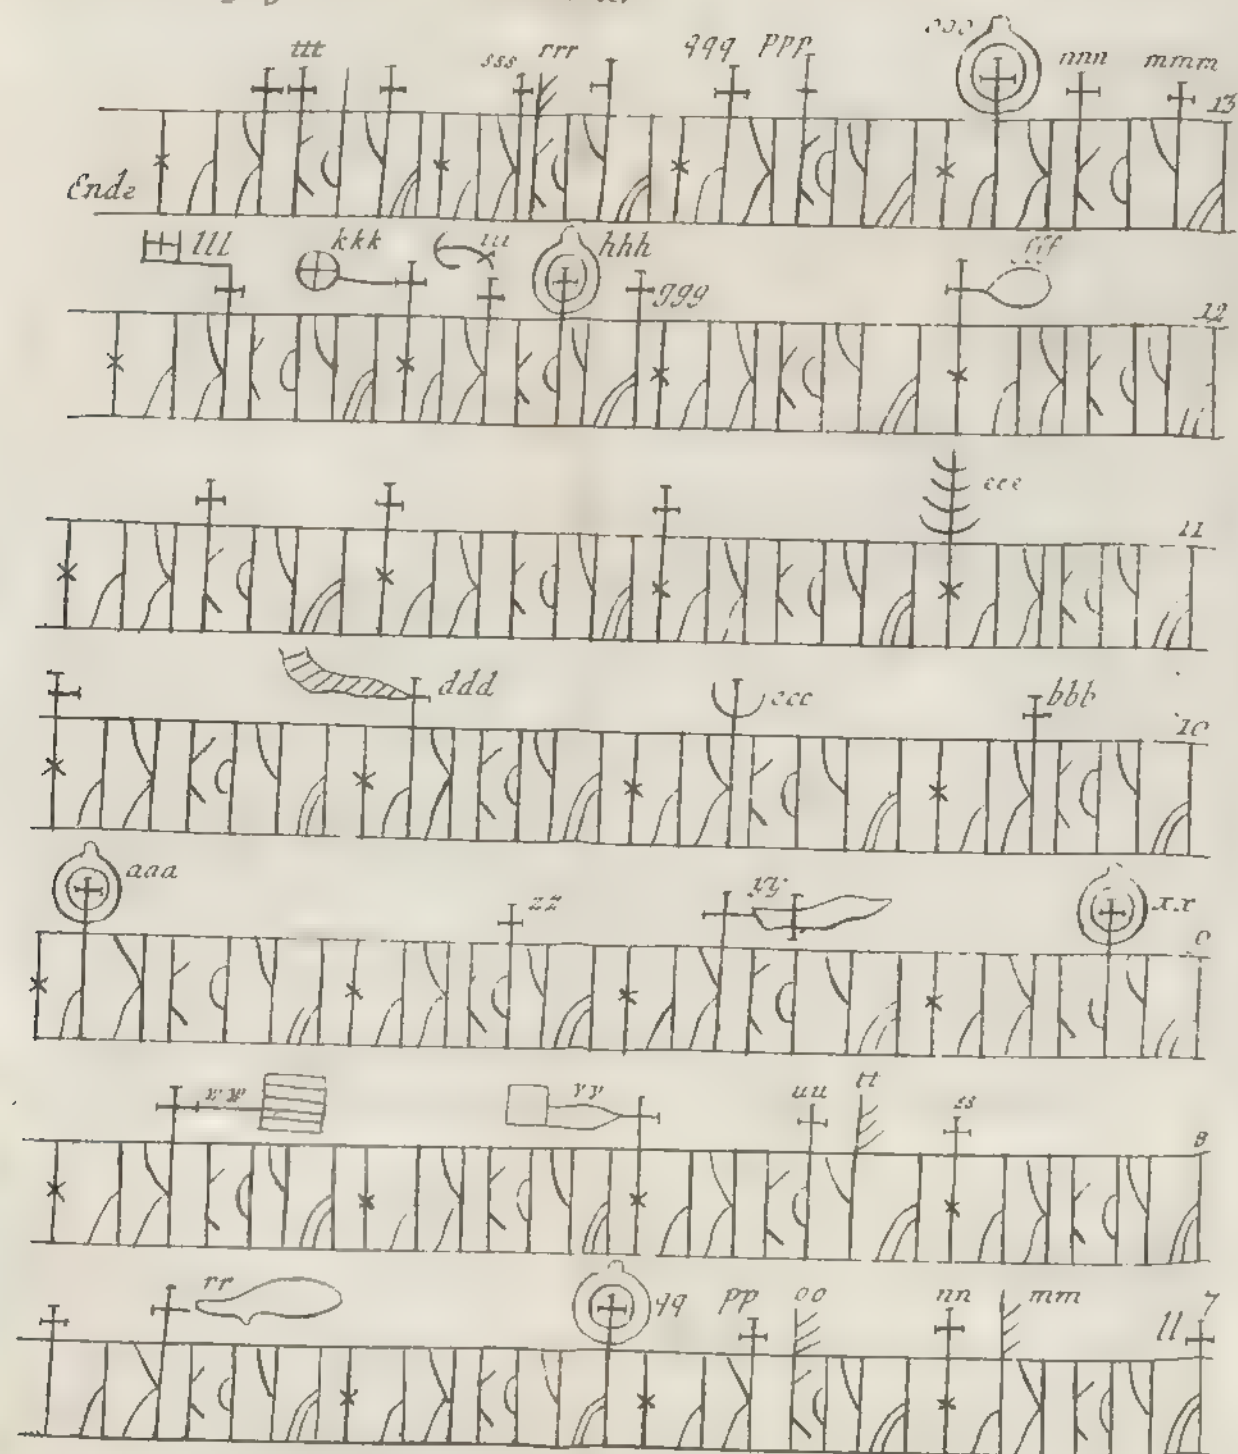 ttt sss rrr qqq ppp ooo nnn mmm 13
Ende
lll kkk iii hhh ggg fff 12
eee 11
ddd ccc bbb 10
aaa zz yy xx 9
ww vv uu tt ss 8
rr qq pp oo nn mm ll 7